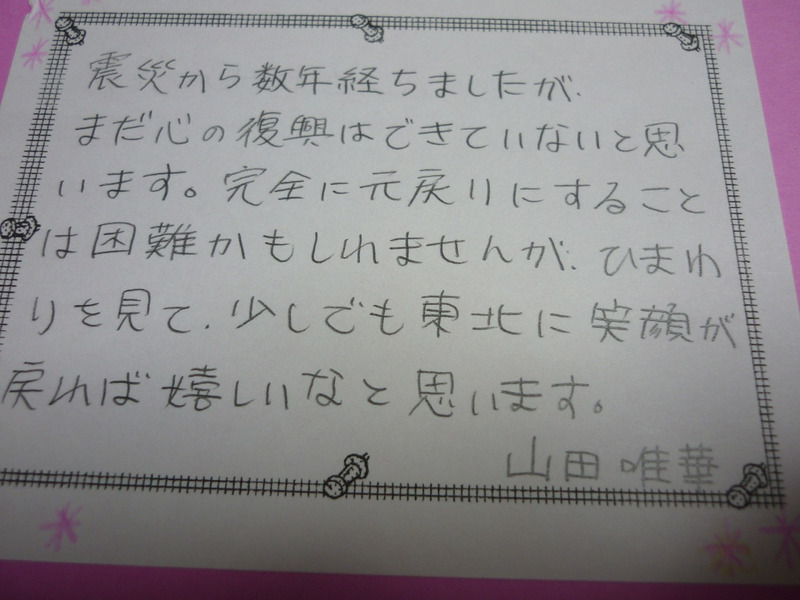 震災から数年経ちましたが、
まだ心の復興はできていないと思
います。完全に元戻りにすること
は困難かもしれませんが、ひまわ
りを見て、少しでも東北に笑顔が
戻れば嬉しいなと思います。
山田唯華